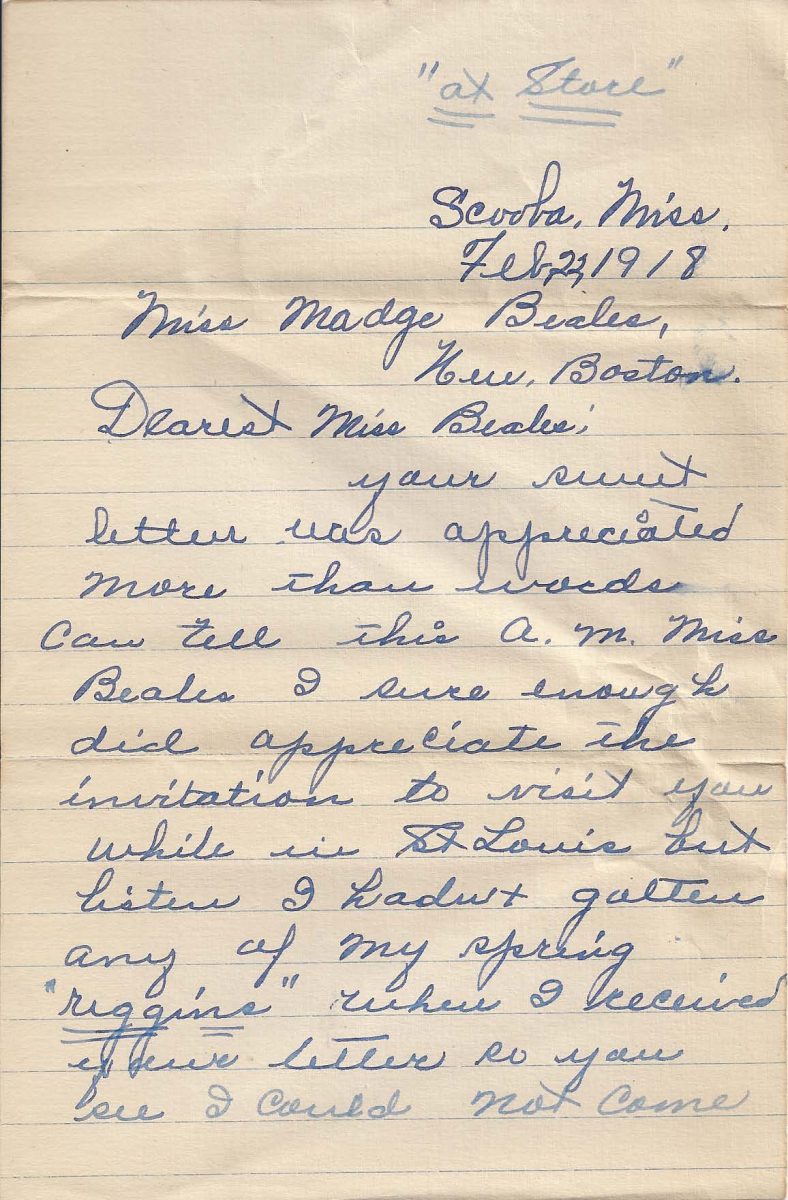 "at Store"
Scooba, Miss.
Feb, 22, 1918
Miss Madge Beales,
New, Boston.
Dearest Miss Beales;
your sweet
letter was appreciated
more than words
can tell this A. M. Miss
Beales I sure enough
did appreciate the
invitation to visit you
while in St Louis but
listen I hadnt gotten
any of my spring
"riggins" when I received
your letter so you
see I could not come